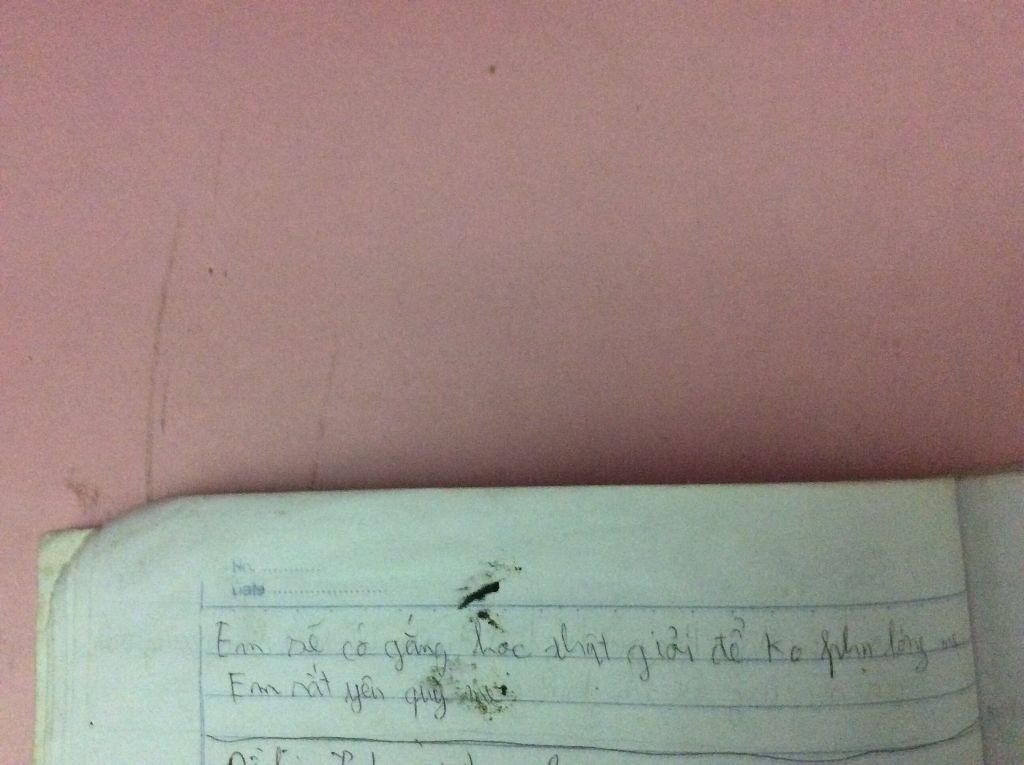 No. ............
Date .......................
Em sẽ cố gắng học thật giỏi để ko phụ lòng mẹ
Em rất yêu quý mẹ